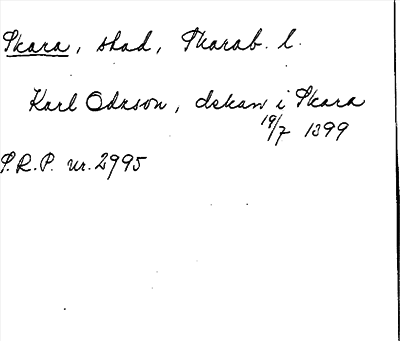 Skara, stad, Skarab. l.
Karl Odason, dekan i Skara
19/7 1399
S.R.P. nr. 2995